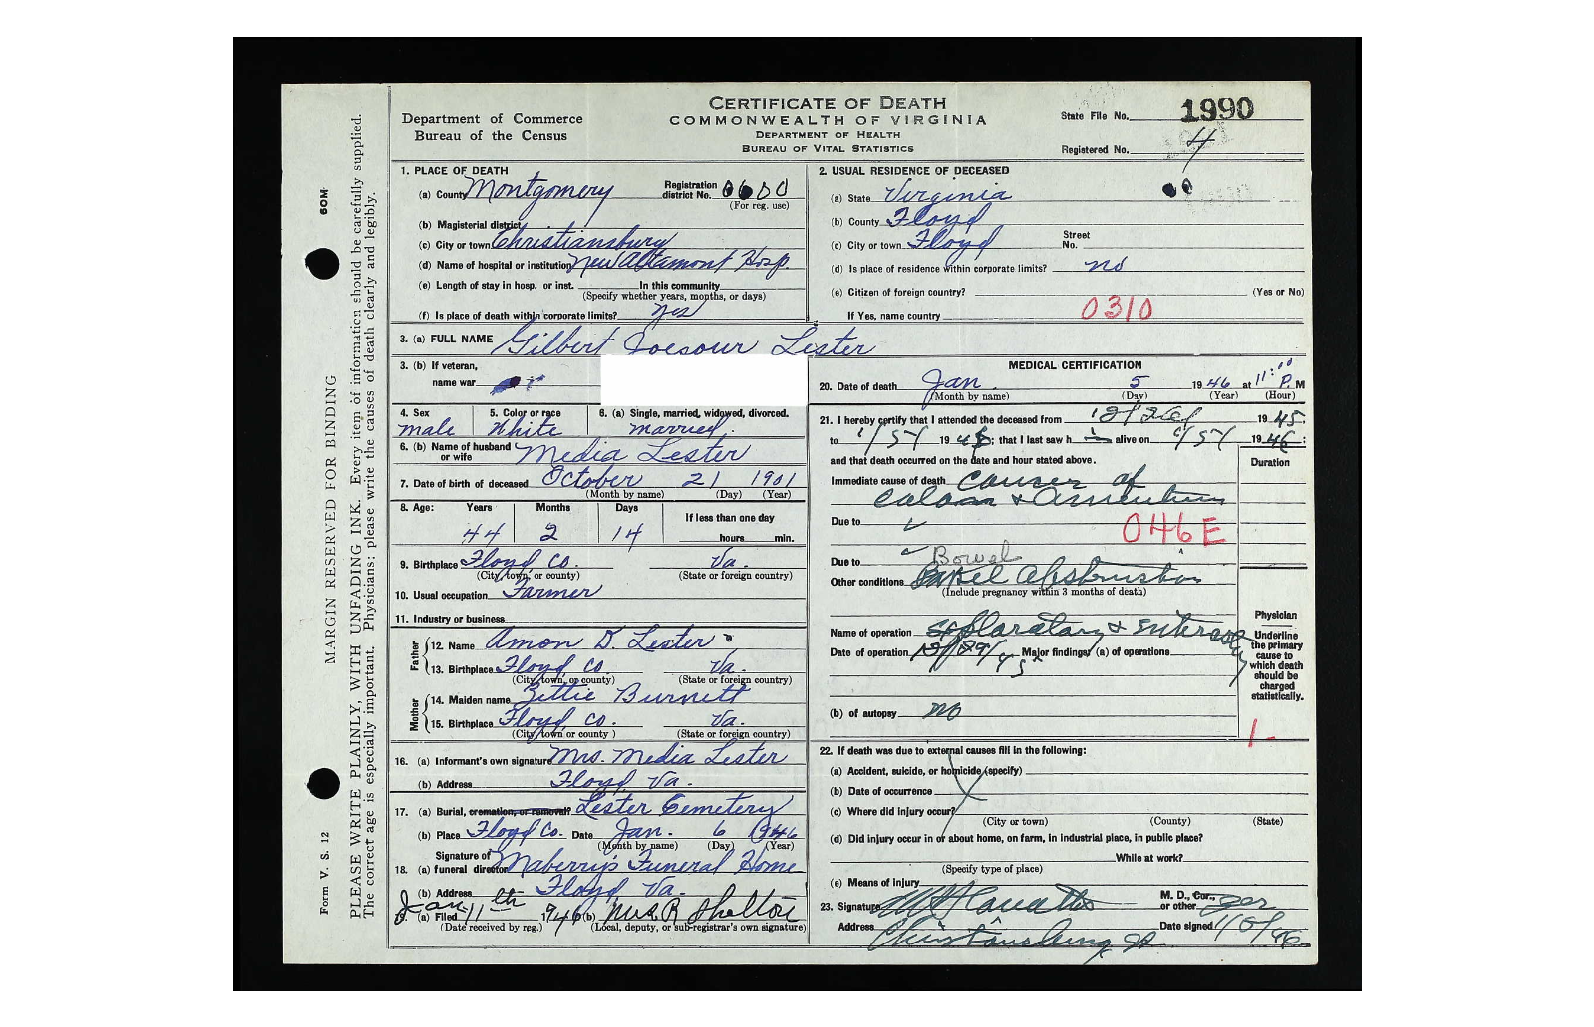 CERTIFICATE OF DEATH
COMMONWEALTH OF VIRGINIA
DEPARTMENT OF HEALTH
BUREAU OF VITAL STATISTICS
Department of Commerce
Bureau of the Census
State File No. 1990
Registered No. 4
60M
MARGIN RESERVED FOR BINDING
PLEASE WRITE PLAINLY, WITH UNFADING INK. Every item of information should be carefully supplied.
The correct age is especially important. Physicians; please write the causes of death clearly and legibly.
Form V. S. 12
1. PLACE OF DEATH
(a) County Montgomery Registration district No. (For reg. use)
(b) Magisterial district
(c) City or town Christiansburg
(d) Name of hospital or institution New Altamont Hosp.
(e) Length of stay in hosp. or inst. In this community
(Specify whether years, months, or days)
(f) Is place of death within corporate limits? yes
2. USUAL RESIDENCE OF DECEASED
(a) State Virginia
(b) County Floyd
(c) City or town Floyd Street No.
(d) Is place of residence within corporate limits? no
(e) Citizen of foreign country? (Yes or No)
If Yes, name country 0310
3. (a) FULL NAME Gilbert Lester
3. (b) If veteran,
name war
4. Sex 5. Color or race 6. (a) Single, married, widowed, divorced.
male White married.
6. (b) Name of husband or wife Media Lester
7. Date of birth of deceased October 21 1901
(Month by name) (Day) (Year)
8. Age: Years Months Days If less than one day
44 2 14 hours min.
9. Birthplace Floyd Co. Va.
(City, town, or county) (State or foreign country)
10. Usual occupation Farmer
11. Industry or business
Father
12. Name Amon D. Lester
13. Birthplace Floyd Co Va.
(City, town, or county) (State or foreign country)
Mother
14. Maiden name Zettie Burnett
15. Birthplace Floyd Co. Va.
(City, town or county) (State or foreign country)
16. (a) Informant's own signature Mrs. Media Lester
(b) Address Floyd, Va.
17. (a) Burial, cremation, or removal? Lester Cemetery
(b) Place Floyd Co. Date Jan. 6 1946
(Month by name) (Day) (Year)
18. (a) Signature of funeral director Maberry's Funeral Home
(b) Address Floyd Va.
(a) Filed Jan 11th 1946 (b) Mrs. R Shelton
(Date received by reg.) (Local, deputy, or sub-registrar's own signature)
MEDICAL CERTIFICATION
20. Date of death Jan. 5 1946 at 11:00 P. M
(Month by name) (Day) (Year) (Hour)
21. I hereby certify that I attended the deceased from 12/26/ 1945;
to 1/5/ 19 46; that I last saw h alive on 1/5/ 1946:
and that death occurred on the date and hour stated above. Duration
Immediate cause of death cancer of
colon & omentum
Due to
046E
Due to
Bowel
Other conditions Bowel Obstruction
(Include pregnancy within 3 months of death)
Name of operation Exploratory &
Date of operation 12/29/45 Major findings: (a) of operations
Physician
Underline
the primary
cause to
which death
should be
charged
statistically.
(b) of autopsy no
1-
22. If death was due to external causes fill in the following:
(a) Accident, suicide, or homicide (specify)
(b) Date of occurrence
(c) Where did injury occur?
(City or town) (County) (State)
(d) Did injury occur in or about home, on farm, in industrial place, in public place?
While at work?
(Specify type of place)
(e) Means of injury
23. Signature M. D., Cor., or other
Address Christiansburg Date signed